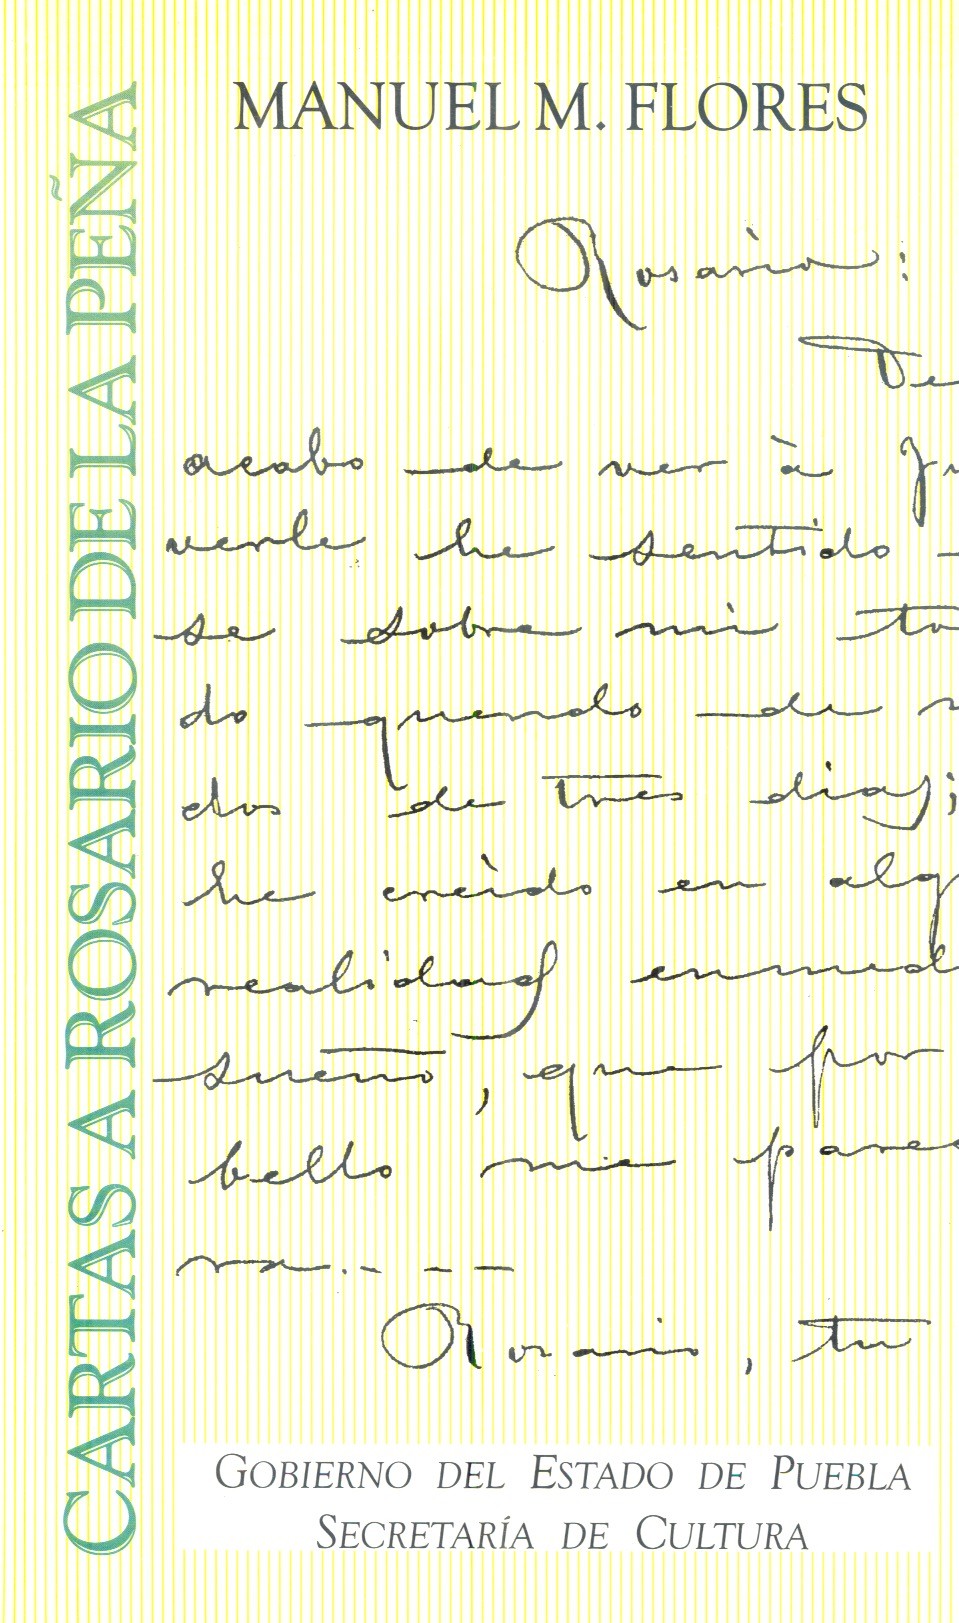 CARTAS A ROSARIO DE LA PEÑA
MANUEL M. FLORES
Rosario:
Te
acabo de ver à
verte he sentido
se sobre mi to
do quando de
dos de tres dias;
he creido en alg
realidad enmed
sueño, que por
bello me parec
ra.. - - -
Rosario, tu
GOBIERNO DEL ESTADO DE PUEBLA
SECRETARÍA DE CULTURA